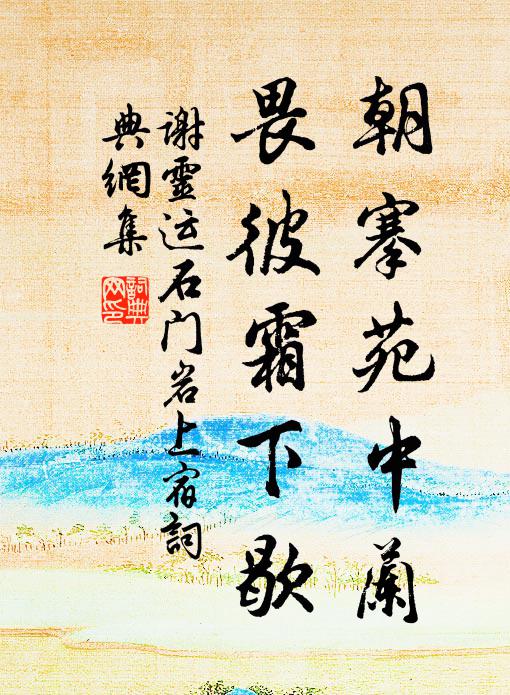 朝搴苑中蘭
畏彼霜下歇
谢靈运石门岩上宿詞
典網集
詞典
网印